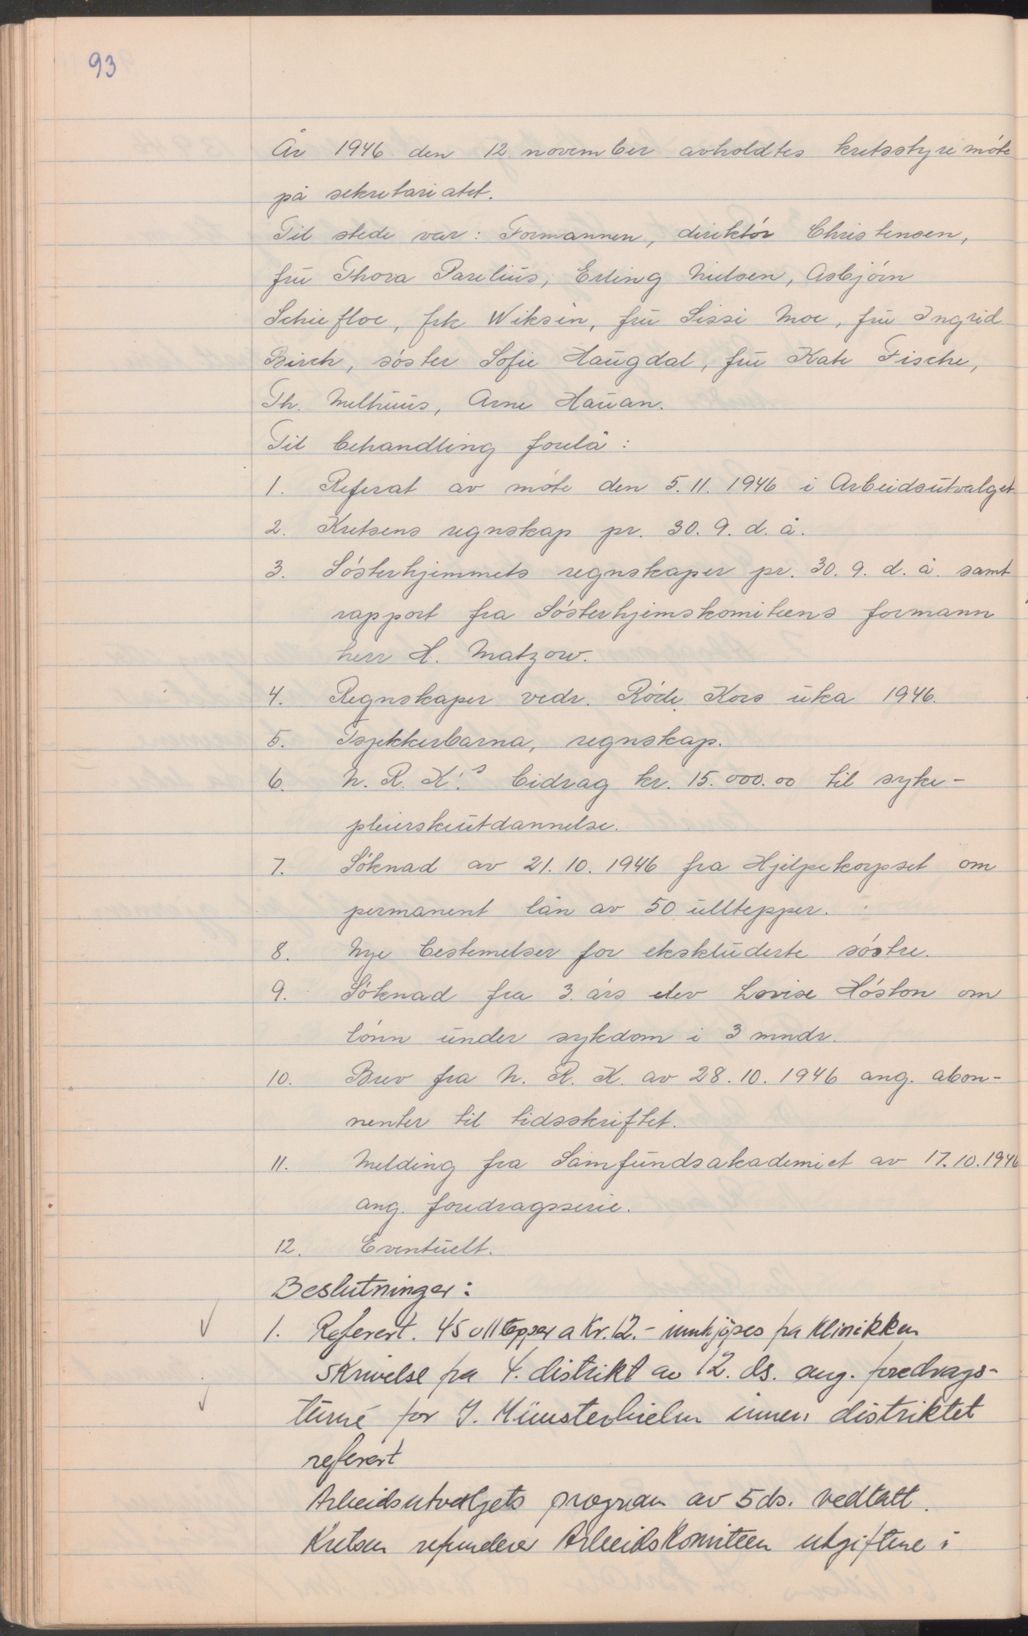 93
År 1946 den 12 november avholdtes kretsstyremöte
på sekretariatet.
Til stede var: Formannen, direktör Christensen,
fru Thora Parelius, Erling Nielsen, Asbjörn
Schiefloe, frk Wiksén, fru Sissi Moe, fru Ingrid
Birch, söster Sofie Haugdal, fru Kate Fische,
Th. Melhuus, Arne Hauan.
Til behandling forelå:
1. Referat av möte den 5.11.1946 i Arbeidsutvalget
2. Kretsens regnskap pr. 30.9. d. å.
3. Sösterhjemmets regnskaper pr. 30.9. d. å. samt
rapport fra Sösterhjemskomiteens formann
herr H. Matzow.
4. Regnskaper vedr. Röde Kors uka 1946.
5. Tsjekkerbarna, regnskap.
6. N. R. K.'s bidrag kr. 15.000.00 til syke-
pleierskeutdannelse.
7. Söknad av 21.10.1946 fra Hjelpekorpset om
permanent lån av 50 ulltepper.
8. Nye bestemelser for ekskluderte söstre.
9. Söknad fra 3 års elev Lovise Höston om
lönn under sykdom i 3 mndr.
10. Brev fra N. R. K. av 28.10.1946 ang. abon-
nenter til tidsskriftet.
11. Melding fra Samfundsakademiet av 17.10.1946
ang. foredragsserie.
12. Eventuelt.
Beslutninger:
1. Referert. 45 ulltepper a Kr. 12.- innkjöpes fra Klinikken
Skrivelse fra 4. distrikt av 12. ds. ang. foredrags-
turné for J. Münsterhielm innen distriktet
referert
Arbeidsutvalgets program av 5 ds. vedtatt.
Kretsen refunderer Arbeidskomiteen utgiftene i